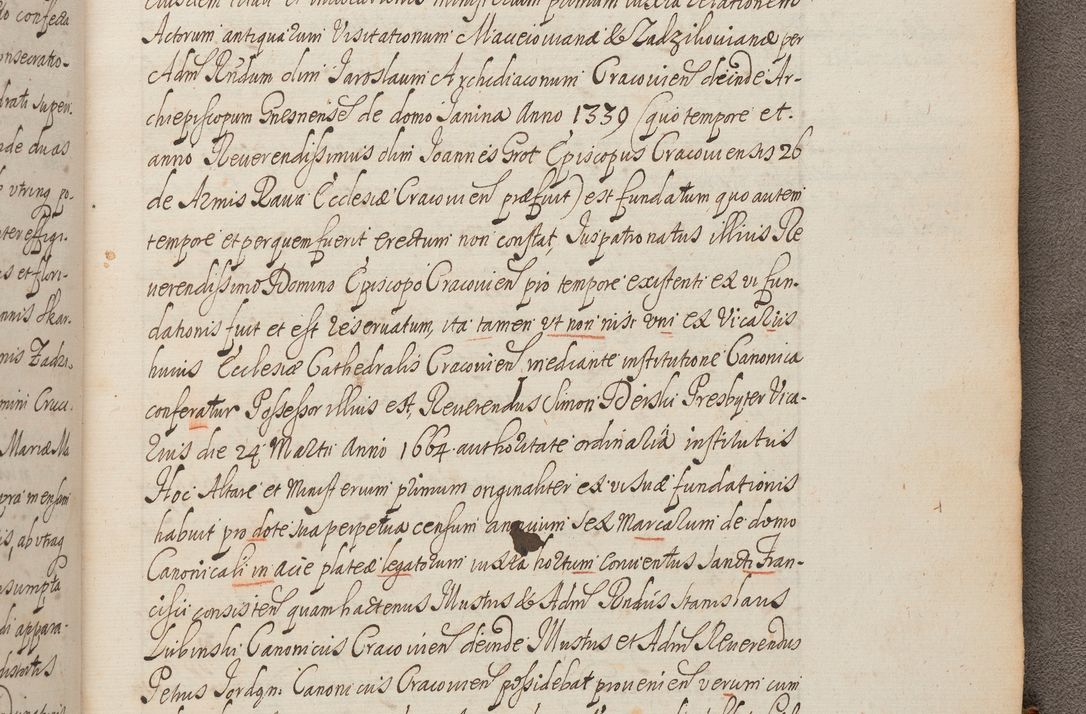 Eiusdem tituli et invocationis ministerium primum iuxta relationem
Actorum antiquarum Visitationum Macieiovianæ & Zadzikovianæ per
Adm Rndum olim Jaroslaum Archidiaconum Cracovien deinde Ar-
chiepiscopum Gnesnensē de domo Janina Anno 1339 (quo tempore et
anno Reverendissimus olim Joannes Grot Episcopus Cracoviensis 26
de Armis Rava Ecclesiæ Cracovien præfuit) est fundatum quo autem
tempore et per quem fuerit erectum non constat, Juspatronatus illius Re
verendissimo Domino Episcopo Cracovien pro tempore existenti ex vi fun-
dationis fuit et est reservatum, ita tamen ut non nisi uni ex Vicariis
huius Ecclesiæ Cathedralis Cracovien mediante institutione Canonica
conferatur Possessor illius est, Reverendus Simon Derski Presbyter Vica-
rius die 24 Martii Anno 1664 authoritate ordinaria institutus
Hoc Altare et Ministerium primum originaliter ex vi suæ fundationis
habuit pro dote sua perpetua censum annuum sex Marcarum de domo
Canonicali in acie plateæ legatorum iuxta hortum Conventus Sancti Fran-
cisci consisten quam hactenus Illustris & Adm Rndus Stanislaus
Lubinski Canonicus Cracovien deinde Illustris et Adm Reverendus
Petrus Jordan Canonicus Cracovien possidebat provenien verum cum